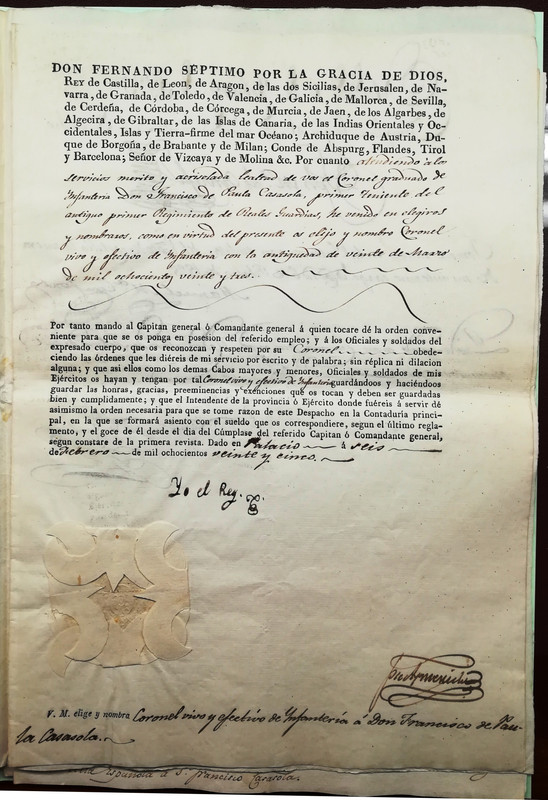 DON FERNANDO SÉPTIMO POR LA GRACIA DE DIOS,
REY de Castilla, de Leon, de Aragon, de las dos Sicilias, de Jerusalen, de Na-
varra, de Granada, de Toledo, de Valencia, de Galicia, de Mallorca, de Sevilla,
de Cerdeña, de Córdoba, de Córcega, de Murcia, de Jaen, de los Algarbes, de
Algecira, de Gibraltar, de las Islas de Canaria, de las Indias Orientales y Oc-
cidentales, Islas y Tierra-firme del mar Océano; Archiduque de Austria, Du-
que de Borgoña, de Brabante y de Milan; Conde de Abspurg, Flandes, Tirol
y Barcelona; Señor de Vizcaya y de Molina &c. Por cuanto atendiendo á los
servicios merito y acrisolada lealtad de vos el Coronel graduado de
Infantería Don Francisco de Paula Casasola, primer Teniente del
antiguo primer Regimiento de Reales Guardias, he venido en elegiros
y nombraros, como en virtud del presente os elijo y nombro Coronel
vivo y efectivo de Infantería con la antiguedad de veinte de Marzo
de mil ochocientos veinte y tres.
Por tanto mando al Capitan general ó Comandante general á quien tocare dé la orden conve-
niente para que se os ponga en posesion del referido empleo; y á los Oficiales y soldados del
expresado cuerpo, que os reconozcan y respeten por su Coronel obede-
ciendo las órdenes que les diéreis de mi servicio por escrito y de palabra; sin réplica ni dilacion
alguna; y que asi ellos como los demas Cabos mayores y menores, Oficiales y soldados de mis
Ejércitos os hayan y tengan por tal Coronel vivo y efectivo de Infantería guardándoos y haciéndoos
guardar las honras, gracias, preeminencias y exenciones que os tocan y deben ser guardadas
bien y cumplidamente; y que el Intendente de la provincia ó Ejército donde fuéreis á servir dé
asimismo la orden necesaria para que se tome razon de este Despacho en la Contaduría princi-
pal, en la que se formará asiento con el sueldo que os correspondiere, segun el último regla-
mento, y el goce de él desde el dia del Cúmplase del referido Capitan ó Comandante general,
segun constare de la primera revista. Dado en Palacio á seis
de Febrero de mil ochocientos veinte y cinco.
Yo el Rey.
V. M. elige y nombra Coronel vivo y efectivo de Infantería á Don Francisco de Pau-
la Casasola.